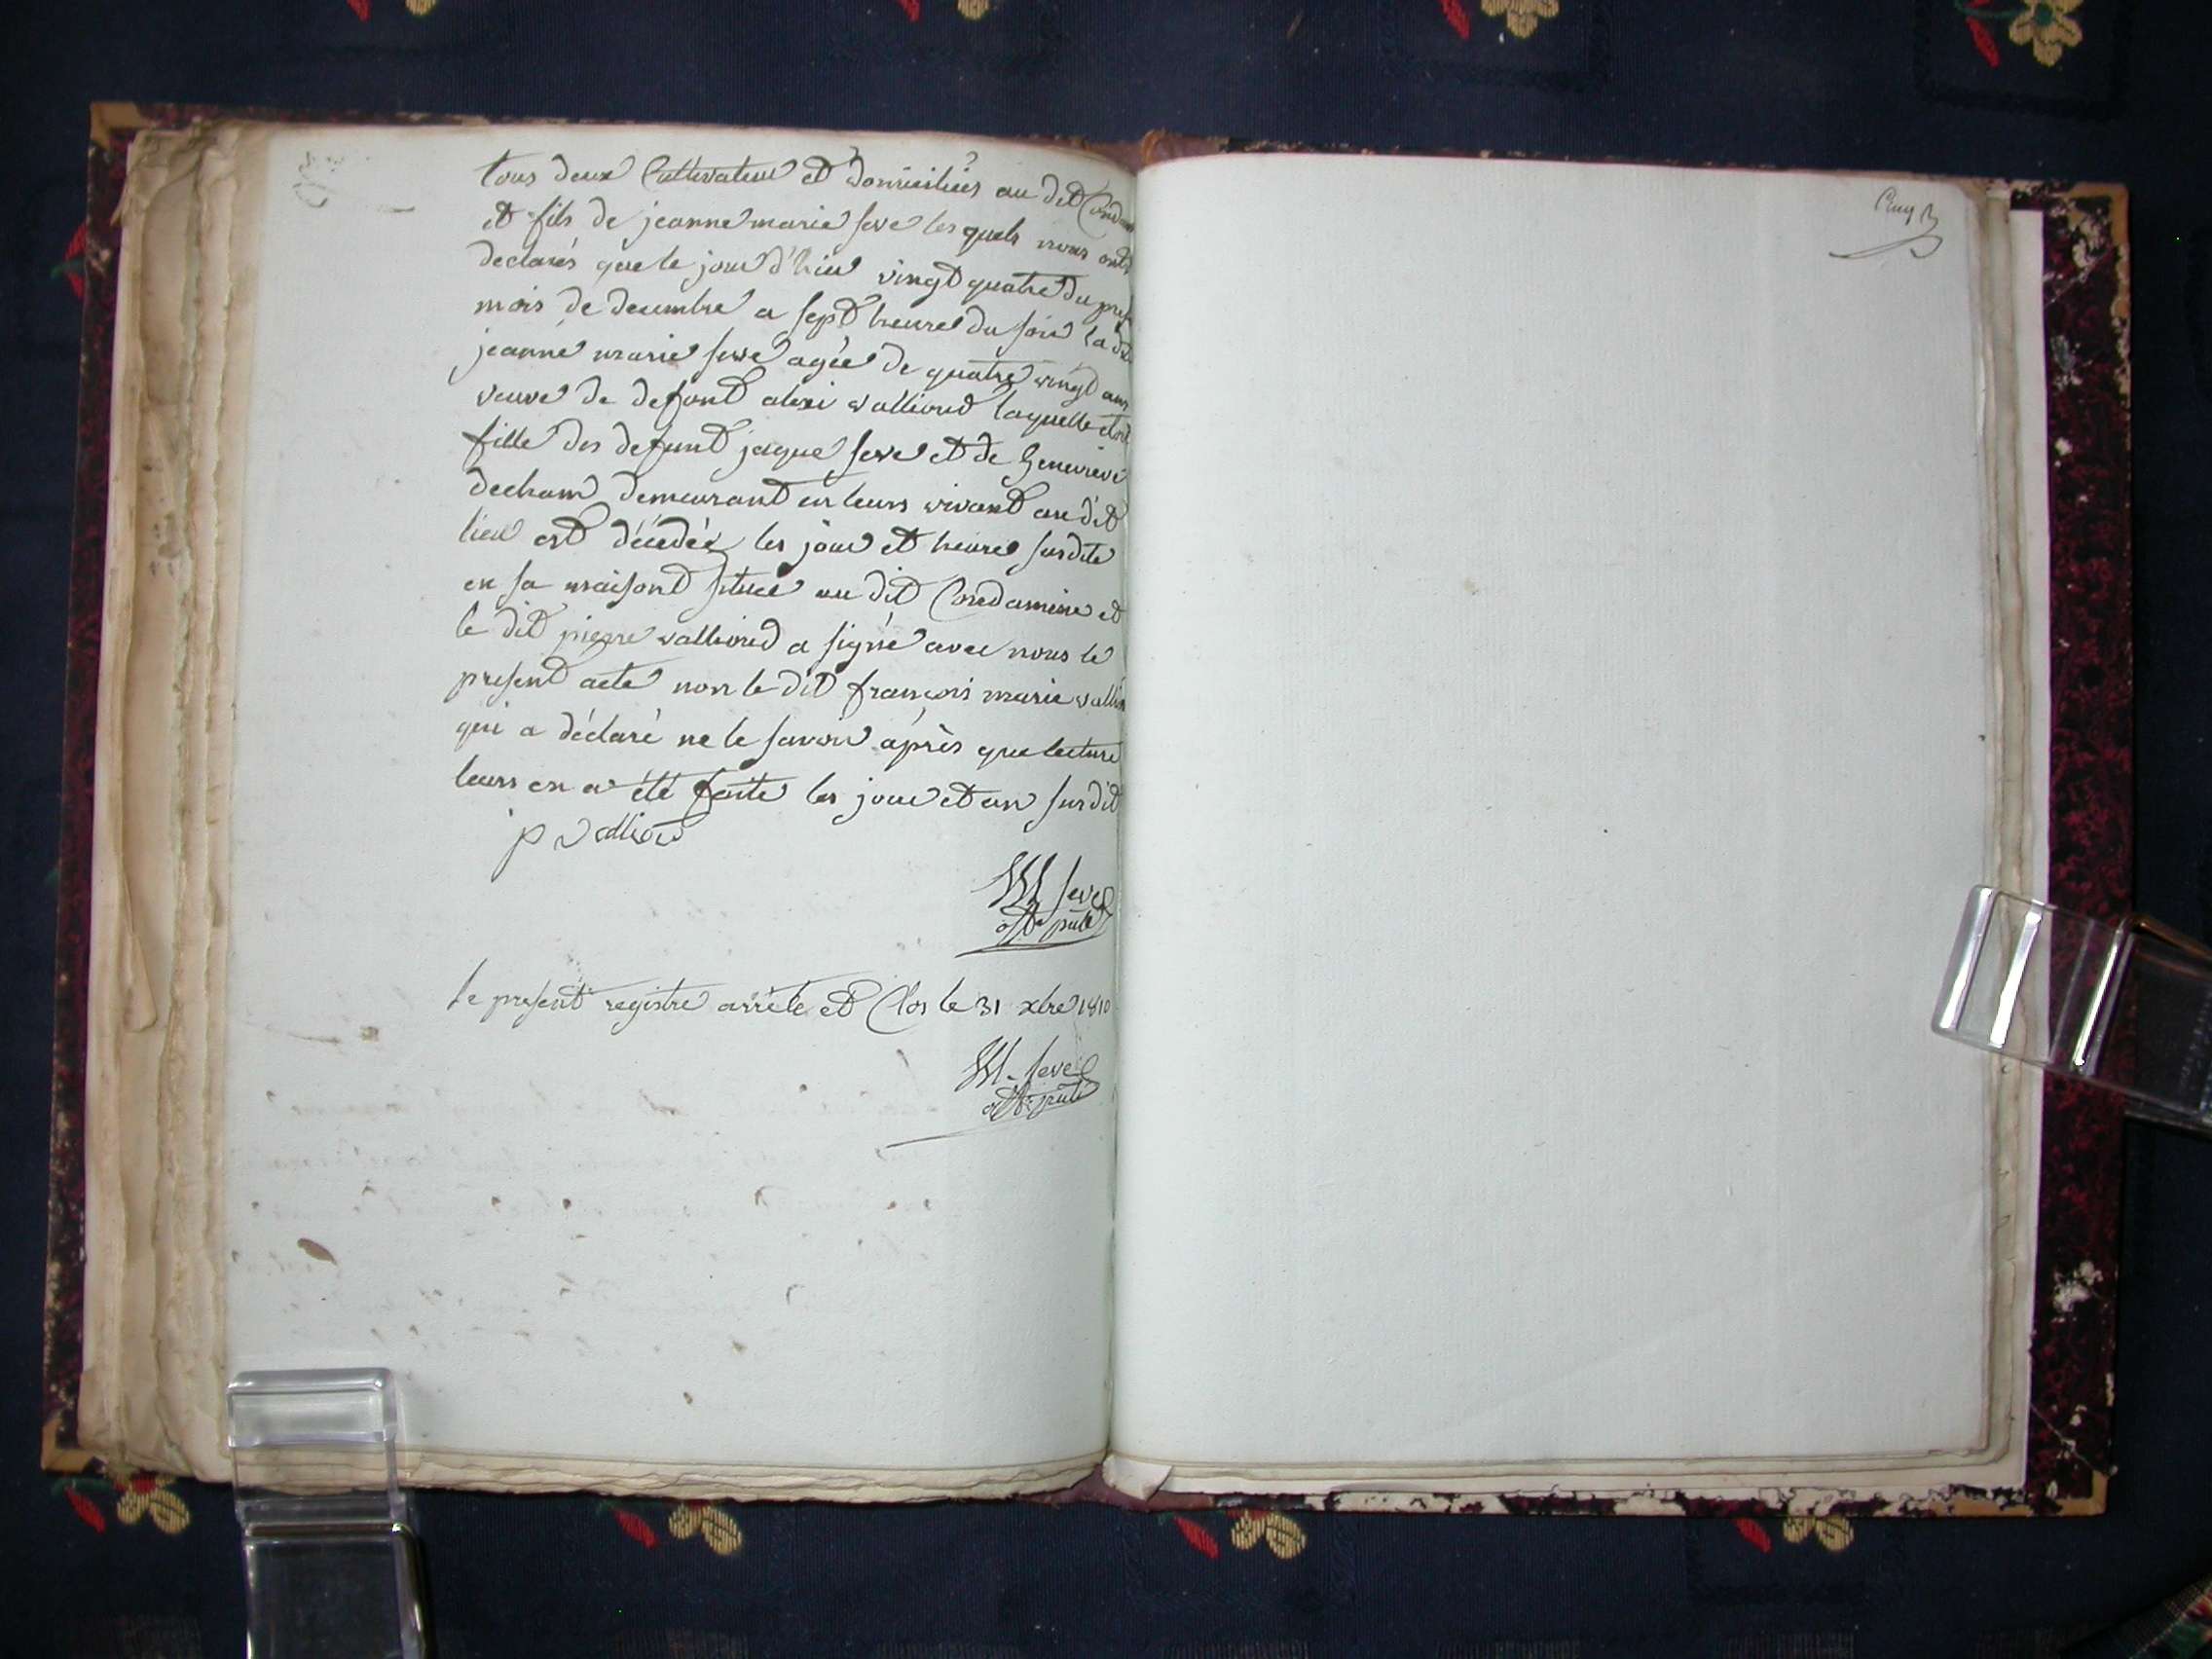 tous deux Cultivateur et domiciliés au dit
et fils de jeanne marie seve les quels nous ont
declarés que le jour d'hier vingt quatre du
mois de decembre a sept heures du soir la
jeanne marie seve agée de quatre vingt ans
veuve de defont alexi valliord laquelle etoit
fille des defunt jaque seve et de Genevieve
decham demeurant en leurs vivant au dit
lieu est décédée les jour et heure susdite
en sa maisont situee au dit Condamine et
le dit pierre valliord a signé avec nous le
present acte non le dit françois marie
qui a déclaré ne le savoir après que lecture
leurs en a été faite les jour et an susdit
p valliord
M seve
Le present registre arrêté et Clos le 31 xbre 1810
M. seve